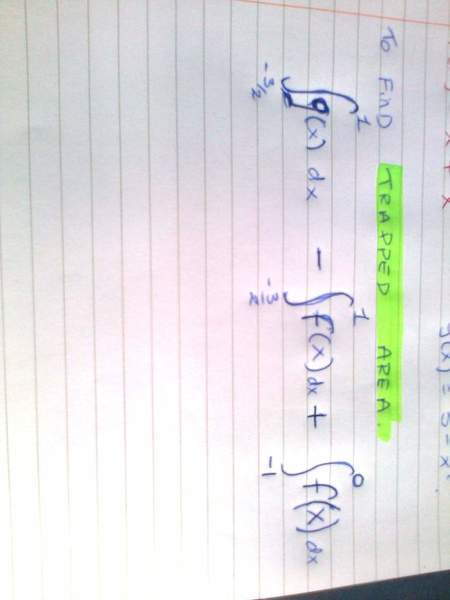 x + x
g(x) = 3 - x².
To FinD TRAPPED AREA.
∫_{-3/2}^{1} g(x) dx - ∫_{-3/2}^{1} f(x) dx + ∫_{-1}^{0} f(x) dx